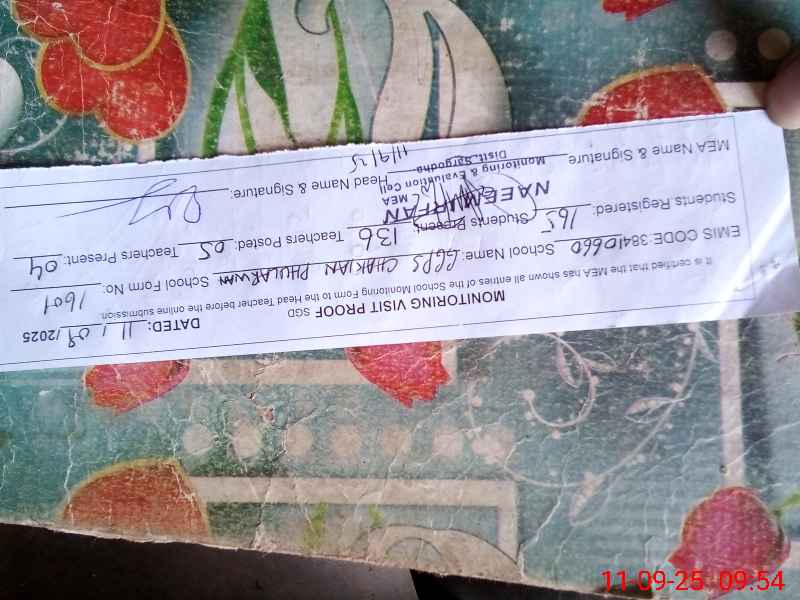 MONITORING VISIT PROOF SGD
DATED: 11/09/2025
It is certified that the MEA has shown all the entries of the School Monitoring Form to the Head Teacher before the online submission.
EMIS CODE: 38410660 School Name: GGPS CHAKIAN PHULARWAN School Form No: 1601
Students Registered: 165 Students Present: 136 Teachers Posted: 05 Teachers Present: 04
NAEEM IRFAN
MEA
Monitoring & Evaluation Cell
Distt. Sargodha
MEA Name & Signature Head Name & Signature:
11/9/25
11-09-25 09:54